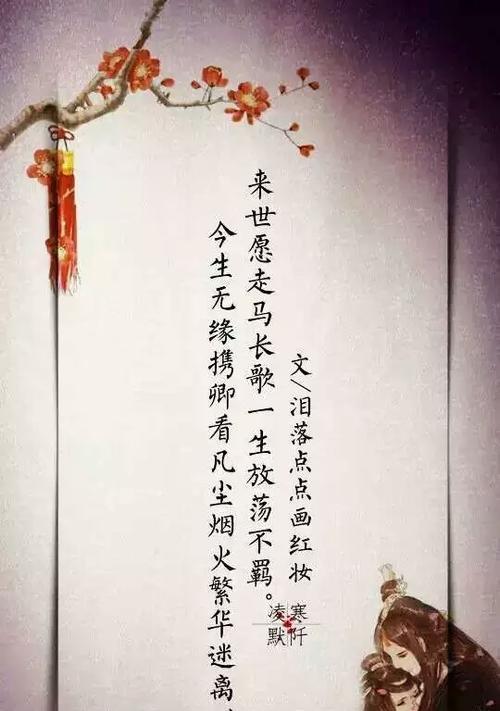 今生无缘携卿看凡尘烟火繁华迷离，
来世愿走马长歌一生放荡不羁。
文\泪落点点画红妆
凌寒
默阡